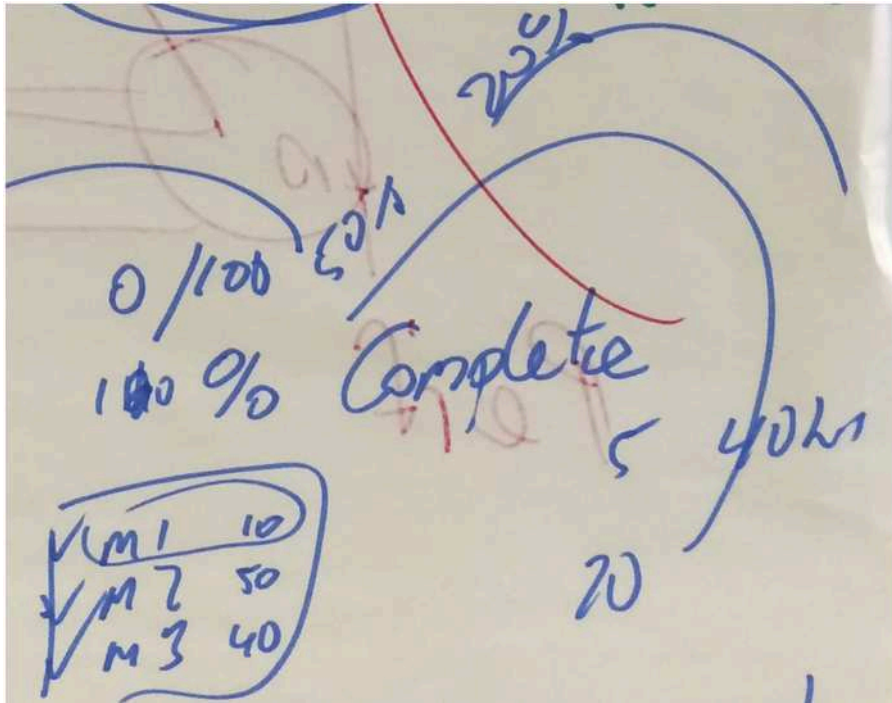 0/100
100 % Complete
5
40hs
20
M1 10
M2 50
M3 40